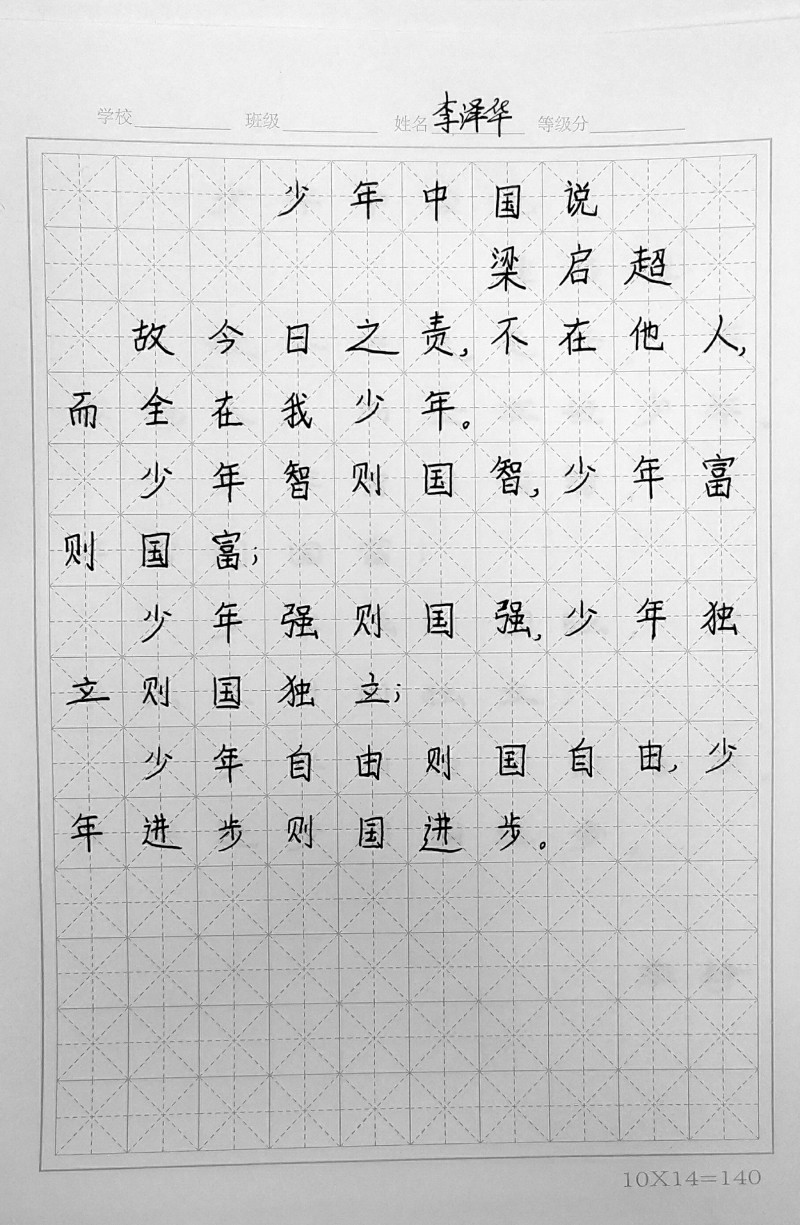 学校 班级 姓名 李泽华 等级分
少年中国说
梁启超
故今日之责,不在他人,
而全在我少年。
少年智则国智,少年富
则国富;
少年强则国强,少年独
立则国独立;
少年自由则国自由,少
年进步则国进步。
10X14=140